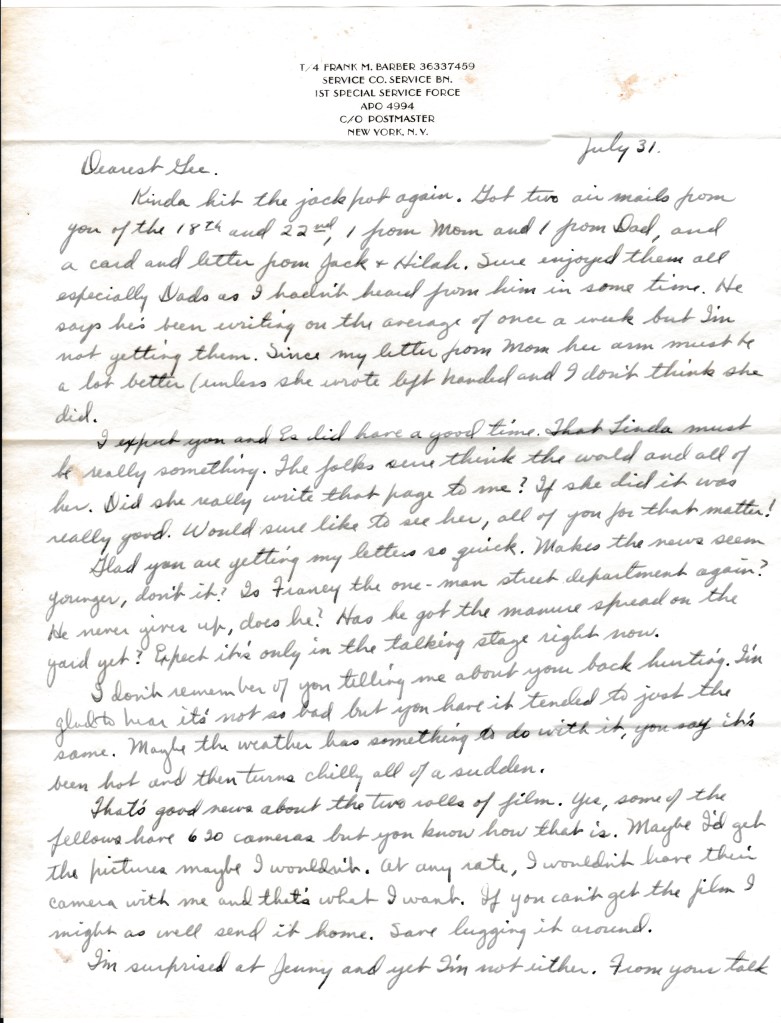 T/4 FRANK M. BARBER 36337459
SERVICE CO. SERVICE BN.
1ST SPECIAL SERVICE FORCE
APO 4994
C/O POSTMASTER
NEW YORK, N. Y.
July 31.
Dearest Gee.
Kinda hit the jackpot again. Got two air mails from
you of the 18th and 22nd, 1 from Mom and 1 from Dad, and
a card and letter from Jack + Hilah. Sure enjoyed them all
especially Dads as I hadn't heard from him in some time. He
says he's been writing on the average of once a week but I'm
not getting them. Since my letter from Mom her arm must be
a lot better (unless she wrote left handed and I don't think she
did.
I expect you and Es did have a good time. That Linda must
be really something. The folks sure think the world and all of
her. Did she really write that page to me? If she did it was
really good. Would sure like to see her, all of you for that matter!
Glad you are getting my letters so quick. Makes the news seem
younger, don't it? Is Franey the one-man street department again?
He never gives up, does he? Has he got the manure spread on the
yard yet? Expect it's only in the talking stage right now.
I don't remember of you telling me about your back hurting. I'm
glad to hear it's not so bad but you have it tended to just the
same. Maybe the weather has something to do with it, you say it's
been hot and then turns chilly all of a sudden.
That's good news about the two rolls of film. Yes, some of the
fellows have 620 cameras but you know how that is. Maybe I'd get
the pictures maybe I wouldn't. At any rate, I wouldn't have their
camera with me and that's what I want. If you can't get the film I
might as well send it home. Save lugging it around.
I'm surprised at Jenny and yet I'm not either. From your talk